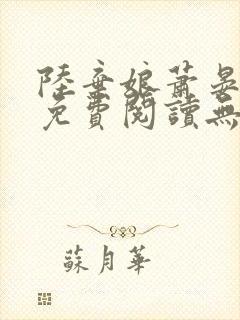 陸棄娘蕭晏
免費閱讀無
蘇月華